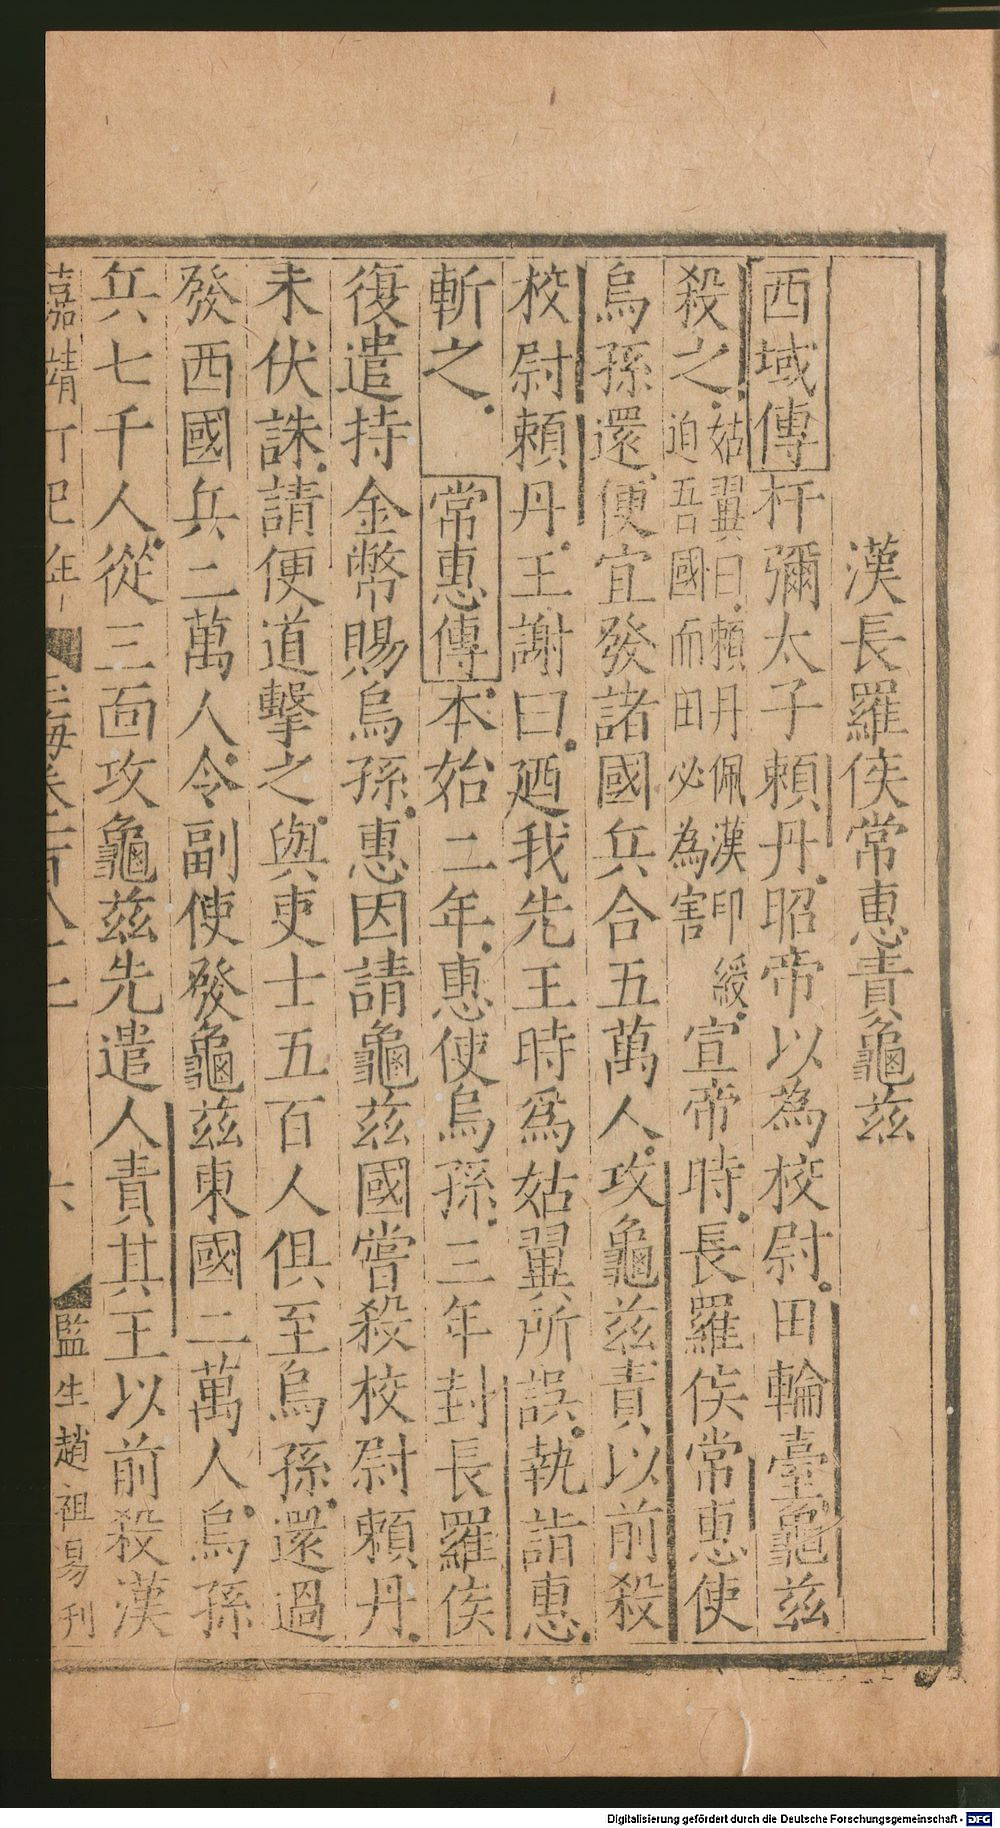 漢長羅侯常惠責龜茲
西域傳扜彌太子賴丹昭帝以為校尉田輪臺龜茲
殺之姑翼曰賴丹佩漢印綬迫吾國而田必為害宣帝時長羅侯常惠使
烏孫還便宜發諸國兵合五萬人攻龜茲責以前殺
校尉賴丹王謝曰廼我先王時爲姑翼所誤執詣惠
斬之 常惠傳本始二年惠使烏孫三年封長羅侯
復遣持金幣賜烏孫惠因請龜茲國嘗殺校尉賴丹
未伏誅請便道擊之與吏士五百人俱至烏孫還過
發西國兵二萬人令副使發龜茲東國二萬人烏孫
兵七千人從三面攻龜茲先遣人責其王以前殺漢
嘉靖丁巳年 玉海卷一百八十一 六 監生趙祖昜刊
Digitalisierung gefördert durch die Deutsche Forschungsgemeinschaft - DFG